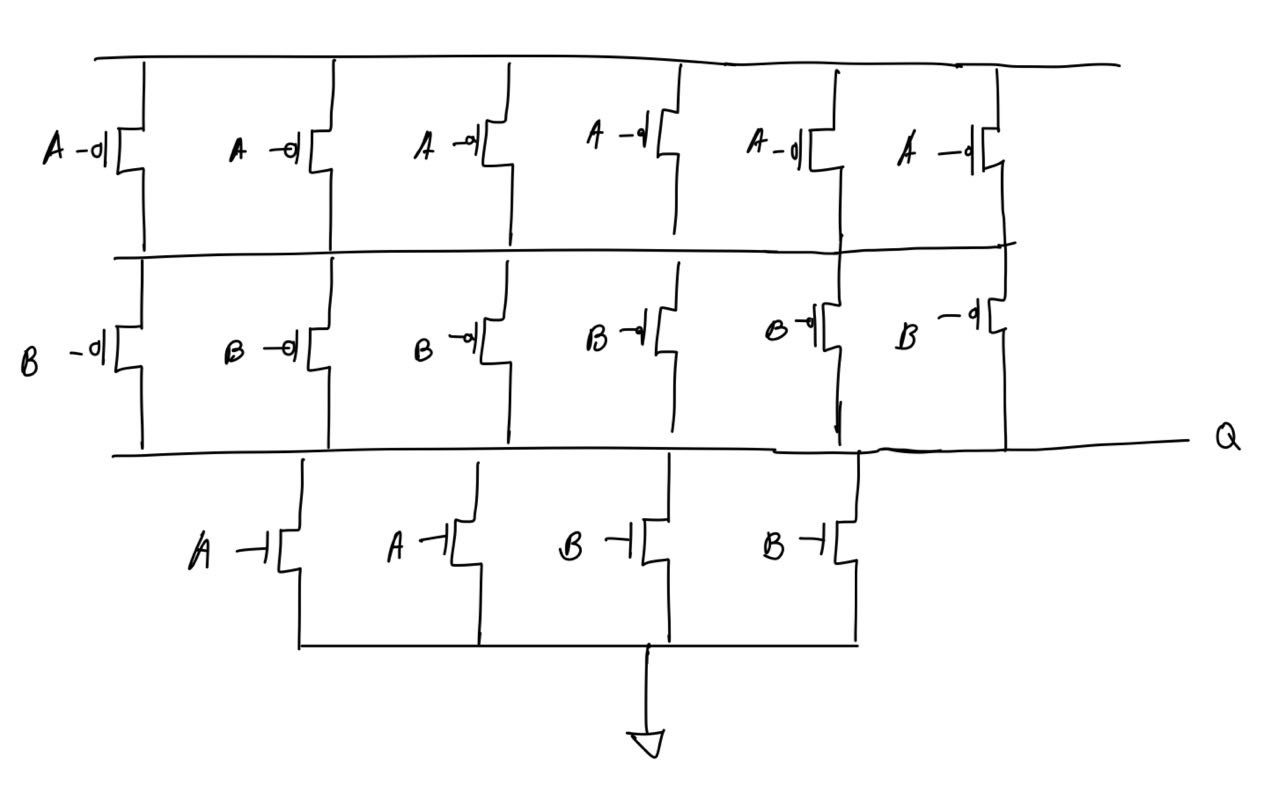 A A A A A A
B B B B B B
Q
A A B B